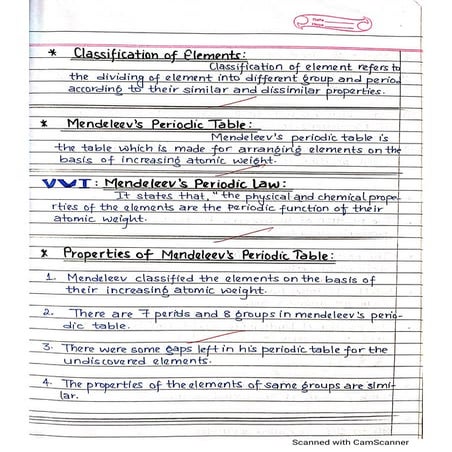 * Classification of Elements:
Classification of element refers to
the dividing of element into different group and period
according to their similar and dissimilar properties.
* Mendeleev's Periodic Table:
Mendeleev's periodic table is
the table which is made for arranging elements on the
basis of increasing atomic weight.
VVI: Mendeleev's Periodic Law:
It states that, "the physical and chemical prope-
rties of the elements are the periodic function of their
atomic weight.
* Properties of Mendeleev's Periodic Table:
1. Mendeleev classified the elements on the basis of
their increasing atomic weight.
2. There are 7 periods and 8 groups in mendeleev's perio-
dic table.
3. There were some gaps left in his periodic table for the
undiscovered elements.
4. The properties of the elements of same groups are simi-
lar.
Scanned with CamScanner